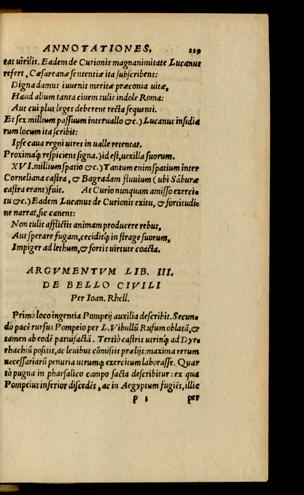 ANNOTATIONES. 119
tas uirilis. Eadem de Curionis magnanimitate Lucanus
refert, Cæsareanæ sententiæ ita subscribens:
Digna damus iuuenis meritæ præconia uitæ,
Haud alium tanta ciuem tulit indole Roma:
Aut cui plus leges deberent recta sequenti.
Et sex millium passuum interuallo &c.) Lucanus insidia
rum locum ita scribit:
Ipse caua regni uires in ualle retentat.
Proximaq́; respiciens signa.) id est, uexilla suorum.
XVI. milium spatio &c.) Tantum enim spatium inter
Corneliana castra, & Bagradam fluuium (ubi Saburæ
castra erant) fuit. At Curio nunquam amisso exerci
tu &c.) Eadem Lucanus de Curionis exitu, & fortitudi
ne narrat, sic canens:
Non tulit afflictis animam producere rebus,
Aut sperare fugam, ceciditq́; in strage suorum,
Impiger ad lethum, & fortis uirtute coacta.
ARGVMENTVM LIB. III.
DE BELLO CIVILI
Per Ioan. Rhell.
Primo loco ingentia Pompeij auxilia describit. Secun
do pacẽ rursus Pompeio per L. Vibullũ Rufum oblatã, &
tamen ab eodẽ paruifactã. Tertiò castris utrinq; ad Dyr
rhachiũ positis, ac leuibus cõmissis prælijs: maxima rerum
necessariarũ penuria utrumq; exercitum laborasse. Quar
tò pugna in pharsalico campo facta describitur: ex qua
Pompeius inferior discedẽs, ac in Aegyptum fugiẽs, illic
p 1 per